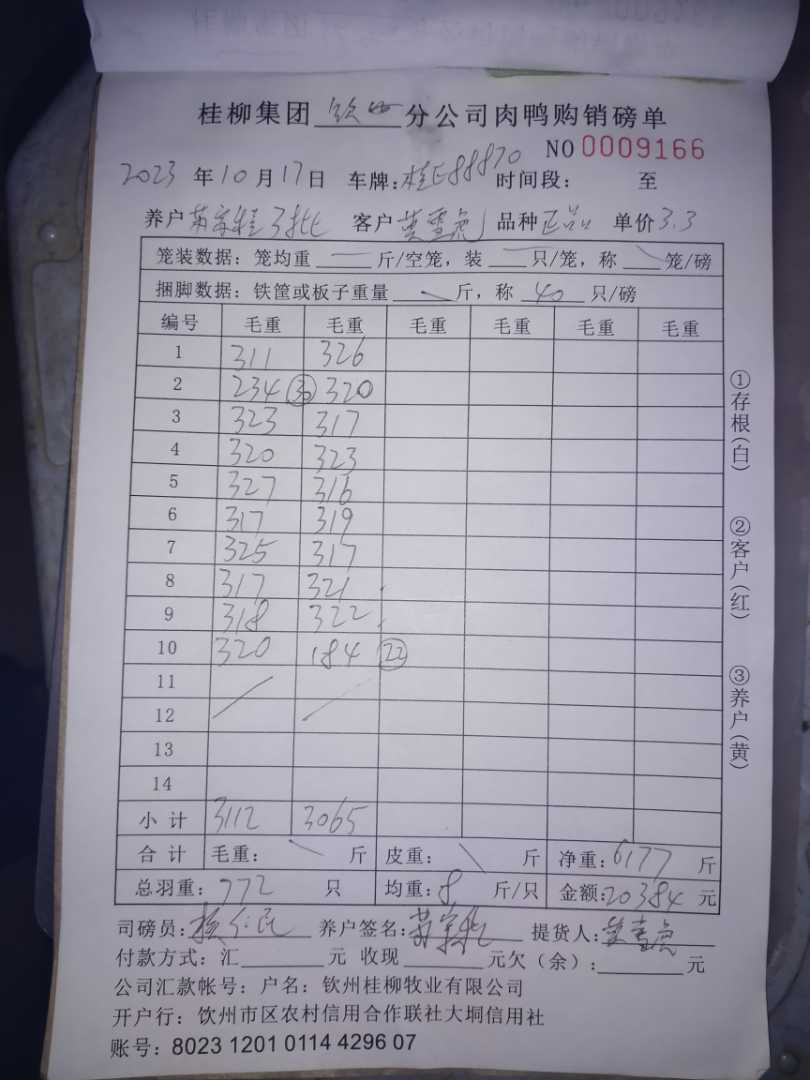 桂柳集团 钦州 分公司肉鸭购销磅单
NO 0009166
2023 年 10 月 17 日 车牌: 桂E88870 时间段: 至
养户 3批 客户 黄雪虎 品种 正品 单价 3.3
笼装数据: 笼均重 斤/空笼, 装 只/笼, 称 笼/磅
捆脚数据: 铁筐或板子重量 斤, 称 40 只/磅
编号 毛重 毛重 毛重 毛重 毛重 毛重
1 311 326
2 234 ㉚ 320
3 323 317
4 320 323
5 327 316
6 317 319
7 325 317
8 317 321
9 318 322
10 320 184 ㉒
11
12
13
14
小计 3112 3065
合计 毛重: 斤 皮重: 斤 净重: 6177 斤
总羽重: 772 只 均重: 8 斤/只 金额: 20384 元
司磅员: 养户签名: 提货人: 黄雪虎
付款方式: 汇 元 收现 元欠(余): 元
公司汇款帐号: 户名: 钦州桂柳牧业有限公司
开户行: 饮州市区农村信用合作联社大垌信用社
账号: 8023 1201 0114 4296 07
①存根(白) ②客户(红) ③养户(黄)